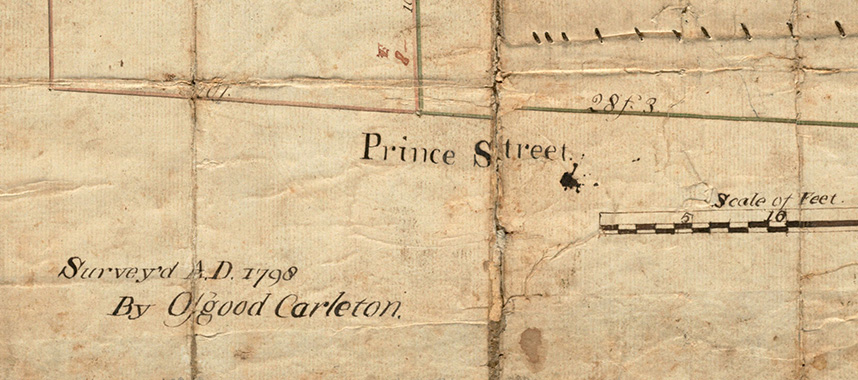 28 f. 3
Prince Street.
Scale of Feet.
5 10
Survey'd A.D. 1798
By Oſgood Carleton.